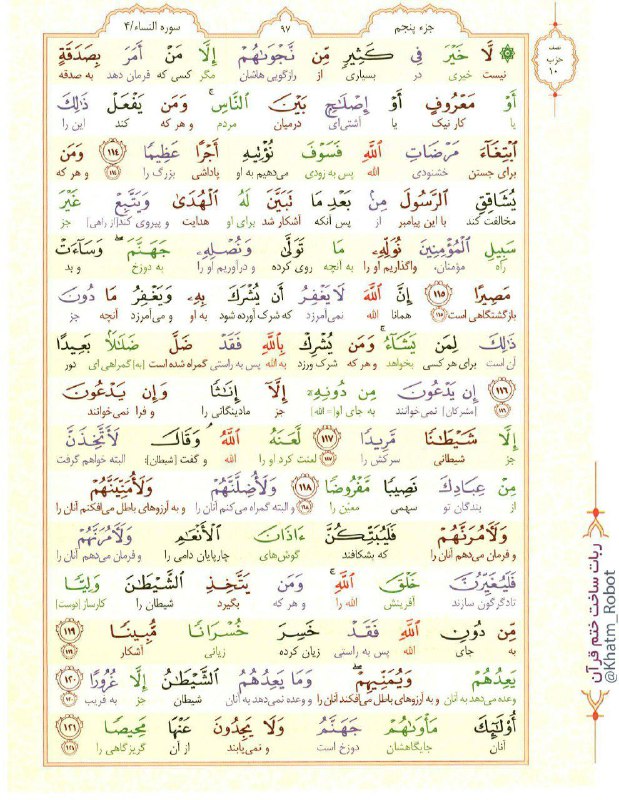 جزء پنجم
٩٧
سوره النساء/۴
نصف
حزب
١٠
لَّا خَيْرَ فِي كَثِيرٍ مِّن نَّجْوَىٰهُمْ إِلَّا مَنْ أَمَرَ بِصَدَقَةٍ
نیست خیری در بسیاری از رازگویی هاشان مگر کسی که فرمان دهد به صدقه
أَوْ مَعْرُوفٍ أَوْ إِصْلَٰحٍ بَيْنَ ٱلنَّاسِ ۚ وَمَن يَفْعَلْ ذَٰلِكَ
یا کار نیک یا آشتی‌ای درمیان مردم و هر که کند این را
ٱبْتِغَآءَ مَرْضَاتِ ٱللَّهِ فَسَوْفَ نُؤْتِيهِ أَجْرًا عَظِيمًا ١١٤ وَمَن
برای جستن خشنودی الله پس به زودی می‌دهیم به او پاداشی بزرگ را ١١٤ و هر که
يُشَاقِقِ ٱلرَّسُولَ مِنۢ بَعْدِ مَا تَبَيَّنَ لَهُ ٱلْهُدَىٰ وَيَتَّبِعْ غَيْرَ
مخالفت کند با این پیامبر از پس آنکه آشکار شد برای او هدایت و پیروی کند [از راهی] جز
سَبِيلِ ٱلْمُؤْمِنِينَ نُوَلِّهِۦ مَا تَوَلَّىٰ وَنُصْلِهِۦ جَهَنَّمَ ۖ وَسَآءَتْ
راه مؤمنان، واگذاریم او را به آنچه روی کرده و درآوریم او را به دوزخ و بد
مَصِيرًا ١١٥ إِنَّ ٱللَّهَ لَا يَغْفِرُ أَن يُشْرَكَ بِهِۦ وَيَغْفِرُ مَا دُونَ
بازگشتگاهی است ١١٥ همانا الله نمی‌آمرزد که شرک آورده شود به او و می‌آمرزد آنچه جز
ذَٰلِكَ لِمَن يَشَآءُ ۚ وَمَن يُشْرِكْ بِٱللَّهِ فَقَدْ ضَلَّ ضَلَٰلًۢا بَعِيدًا
آن است برای هر کسی بخواهد و هر که شرک ورزد به الله پس به راستی گمراه شده است [به] گمراهی ای دور
١١٦ إِن يَدْعُونَ مِن دُونِهِۦٓ إِلَّآ إِنَٰثًا وَإِن يَدْعُونَ
١١٦ [مشرکان] نمی‌خوانند به جای او [= الله] جز مادینگانی را و فرا نمی‌خوانند
إِلَّا شَيْطَٰنًا مَّرِيدًا ١١٧ لَّعَنَهُ ٱللَّهُ ۘ وَقَالَ لَأَتَّخِذَنَّ
جز شیطانی سرکش را ١١٧ لعنت کرد او را الله و گفت [شیطان]: البته خواهم گرفت
مِنْ عِبَادِكَ نَصِيبًا مَّفْرُوضًا ١١٨ وَلَأُضِلَّنَّهُمْ وَلَأُمَنِّيَنَّهُمْ
از بندگان تو سهمی معیّن را ١١٨ و البته گمراه می‌کنم آنان را و به آرزوهای باطل می‌افکنم آنان را
وَلَءَامُرَنَّهُمْ فَلَيُبَتِّكُنَّ ءَاذَانَ ٱلْأَنْعَٰمِ وَلَءَامُرَنَّهُمْ
و فرمان می‌دهم آنان را که بشکافند گوش‌های چارپایان دامی را و فرمان می‌دهم آنان را
فَلَيُغَيِّرُنَّ خَلْقَ ٱللَّهِ ۚ وَمَن يَتَّخِذِ ٱلشَّيْطَٰنَ وَلِيًّا
تادگرگون سازند آفرینش الله را و هر که بگیرد شیطان را کارساز [دوست]
مِّن دُونِ ٱللَّهِ فَقَدْ خَسِرَ خُسْرَانًا مُّبِينًا ١١٩
به جای الله پس به راستی زیان کرده زیانی آشکار ١١٩
يَعِدُهُمْ وَيُمَنِّيهِمْ ۖ وَمَا يَعِدُهُمُ ٱلشَّيْطَٰنُ إِلَّا غُرُورًا ١٢٠
وعده می‌دهد به آنان و به آرزوهای باطل می‌افکند آنان را و وعده نمی‌دهد به آنان شیطان جز به فریب ١٢٠
أُو۟لَٰٓئِكَ مَأْوَىٰهُمْ جَهَنَّمُ وَلَا يَجِدُونَ عَنْهَا مَحِيصًا ١٢١
آنان جایگاهشان دوزخ است و نمی‌یابند از آن گریزگاهی را ١٢١
ربات ساخت ختم قرآن
@Khatm_Robot